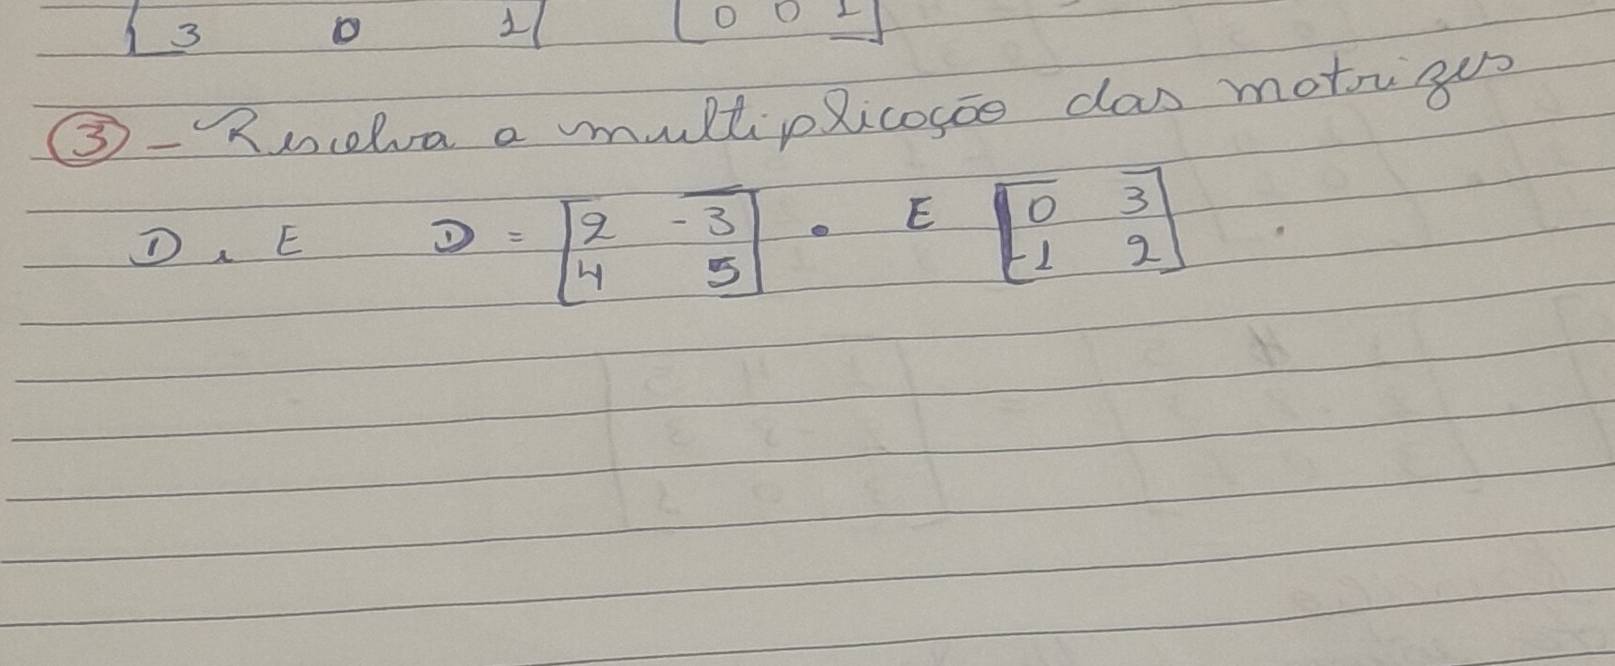 3 0 1 0 0 1
3 - Resolva a multiplicação das matrizes
D . E D = [2 -3] . E [0 3]
[4 5] [-1 2]